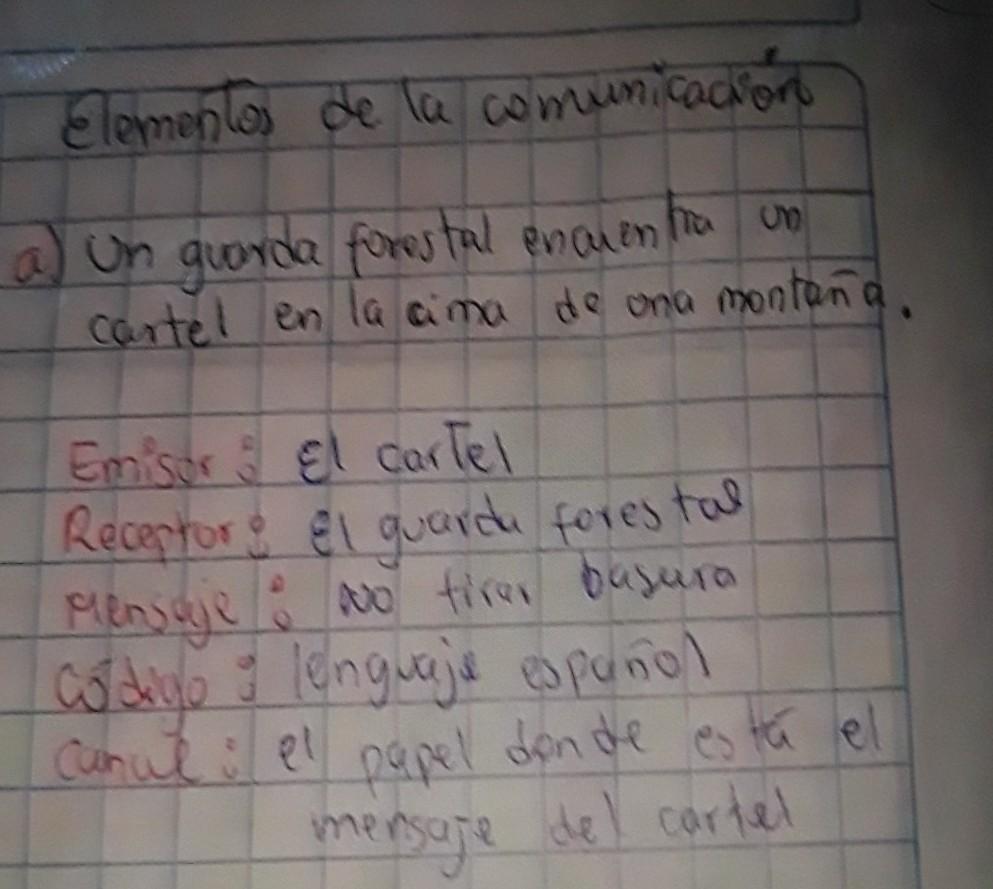 Elementos de la comunicación
a) Un guarda forestal encuentra un
cartel en la cima de una montaña.
Emisor: El cartel
Receptor: El guarda forestal
Mensaje: No tirar basura
Código: lenguaje español
Canal: el papel donde está el
mensaje del cartel